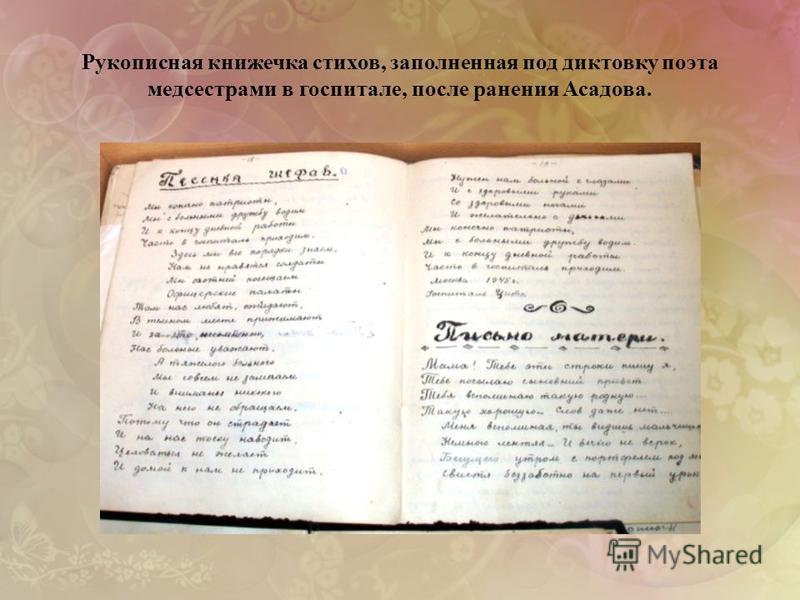 Рукописная книжечка стихов, заполненная под диктовку поэта
медсестрами в госпитале, после ранения Асадова.
- 18 -
Песенка шефов.
Мы конечно патриоты,
Мы с больными дружбу водим
И к концу дневной работы
Часто в госпиталь приходим.
Здесь мы все порядки знаем,
Нам не нравятся солдаты
Мы охотней посещаем
Офицерские палаты
Там нас любят, ожидают,
В темном месте прижимают
И за это, несомненно,
Нас больные уважают.
А тяжелого больного
Мы совсем не замечаем
И вниманья никакого
На него не обращаем.
Потому что он страдает
И на нас тоску наводит.
Целоваться не желает
И домой к нам не приходит.
- 19 -
Нужен нам больной с глазами
И с здоровыми руками
Со здоровыми ногами
И желательно с деньгами
Мы конечно патриоты,
Мы с больными дружбу водим.
И к концу дневной работы
Часто в госпиталь приходим.
Москва 1945г.
Госпиталь
Письмо матери.
Мама! Тебе эти строки пишу я,
Тебе посылаю сыновний привет
Тебя вспоминаю такую родную...
Такую хорошую... Слов даже нет...
Меня вспоминая, ты видишь мальчишку
Немного лентяя... И вечно не в срок,
Бегущего утром с портфелем под
Свистя беззаботно на первый урок
MyShared